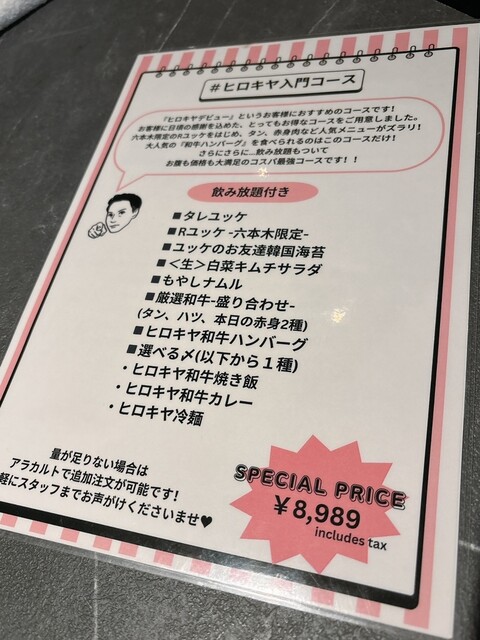 #ヒロキヤ入門コース
『ヒロキヤデビュー』というお客様におすすめのコースです！
お客様に日頃の感謝を込めた、とってもお得なコースをご用意しました。
六本木限定のRユッケをはじめ、タン、赤身肉など人気メニューがズラリ！
大人気の『和牛ハンバーグ』を食べられるのはこのコースだけ！
さらにさらに…飲み放題もついて
お腹も価格も大満足のコスパ最強コースです！！
飲み放題付き
■タレユッケ
■Rユッケ -六本木限定-
■ユッケのお友達韓国海苔
■＜生＞白菜キムチサラダ
■もやしナムル
■厳選和牛-盛り合わせ-
(タン、ハツ、本日の赤身2種)
■ヒロキヤ和牛ハンバーグ
■選べる〆(以下から１種)
・ヒロキヤ和牛焼き飯
・ヒロキヤ和牛カレー
・ヒロキヤ冷麺
量が足りない場合は
アラカルトで追加注文が可能です！
軽にスタッフまでお声がけくださいませ♥
SPECIAL PRICE
￥8,989
includes tax